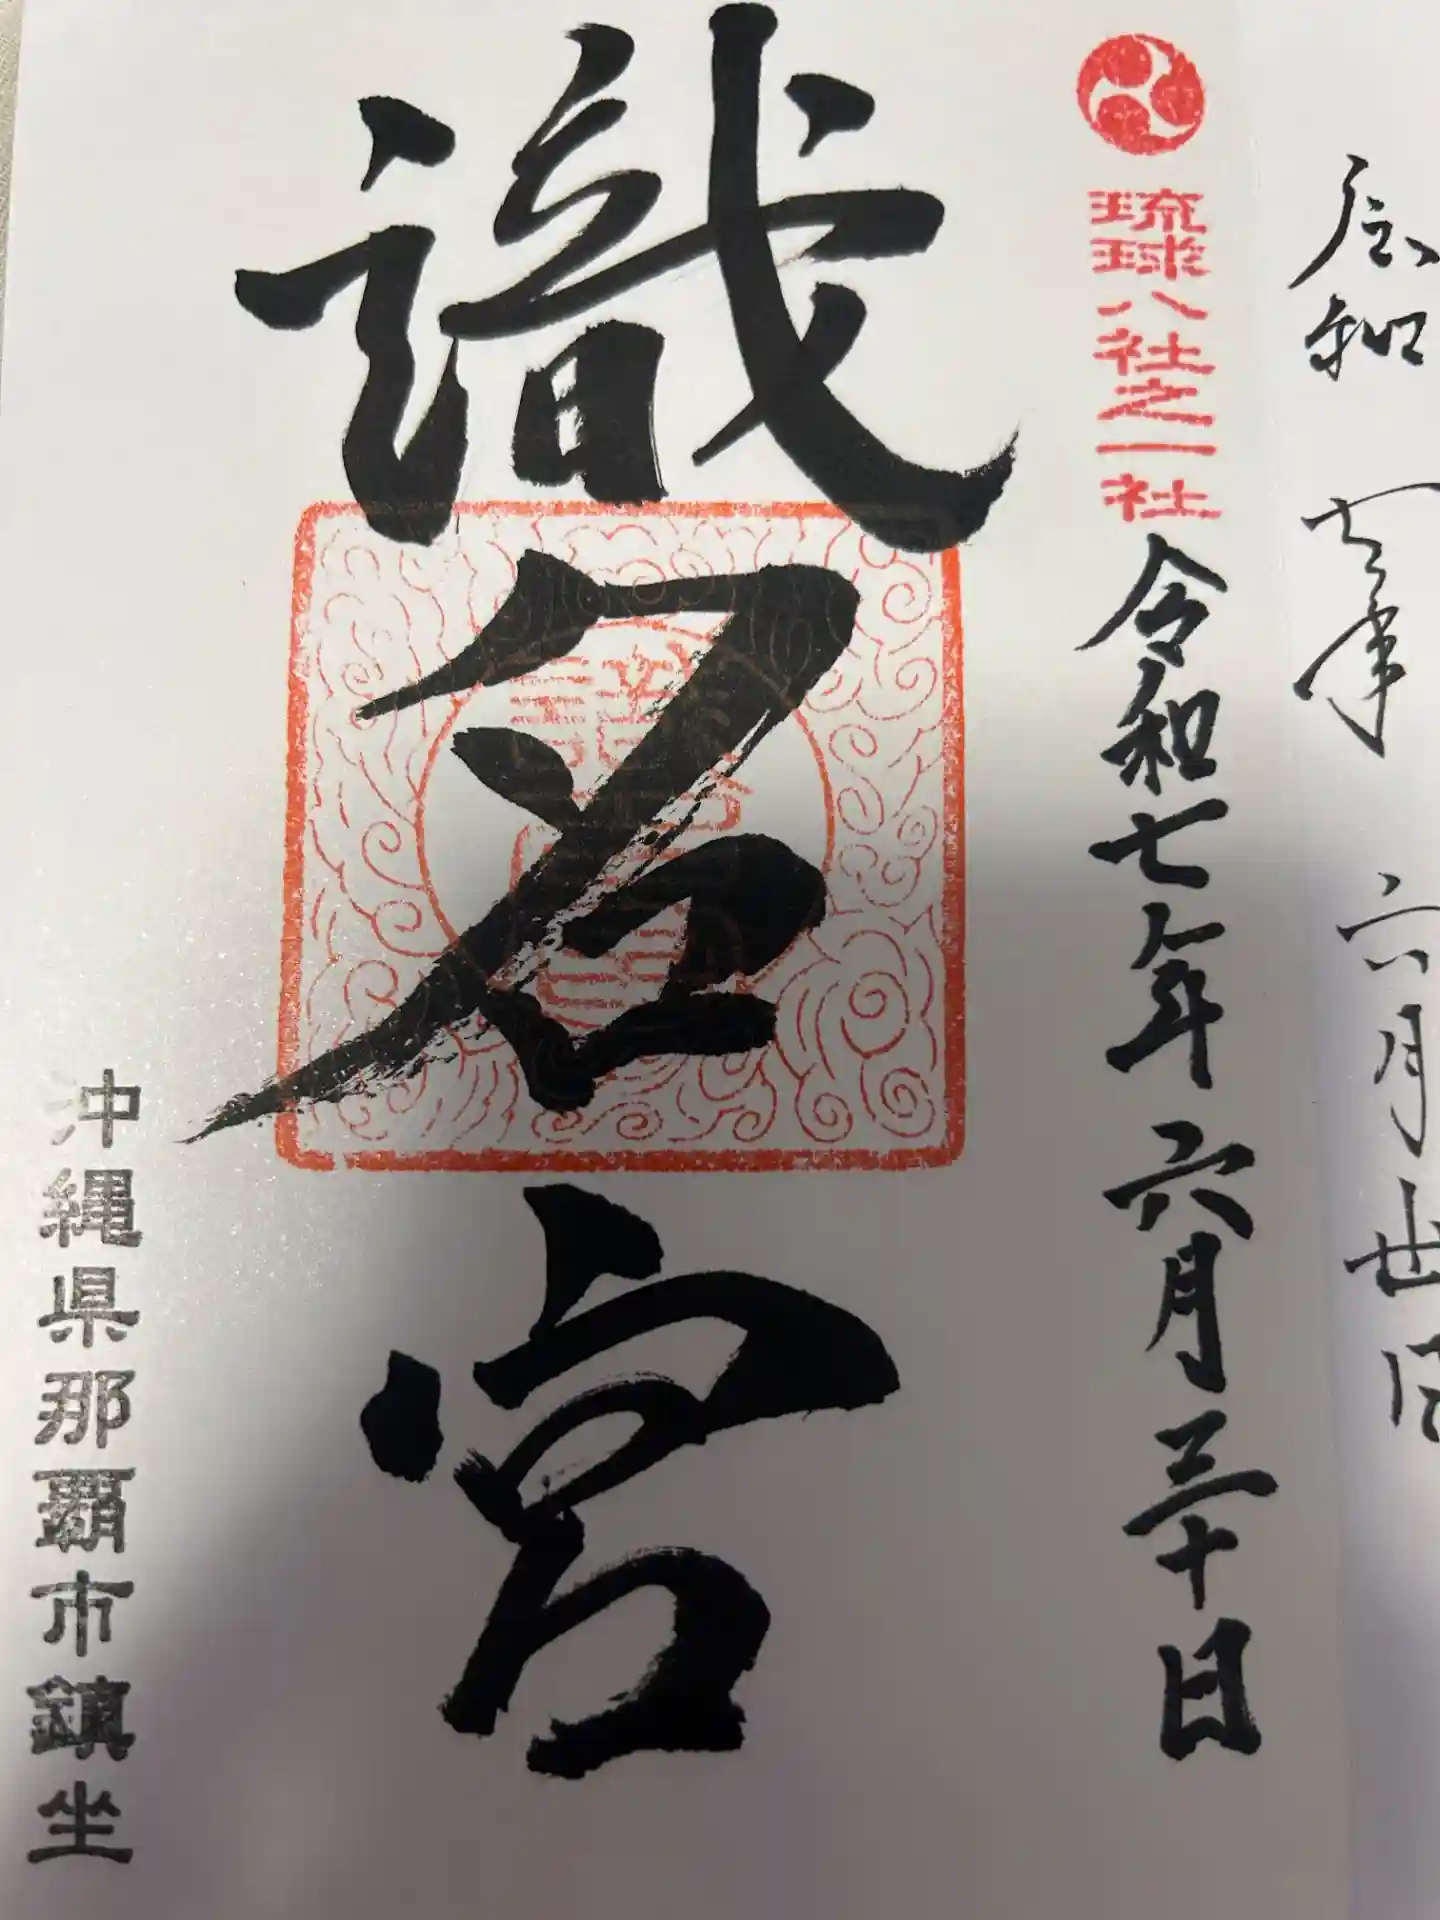 令和 七年 六月 丗日
琉球八社之一社
令和七年六月三十日
識名宮
沖縄県那覇市鎮坐